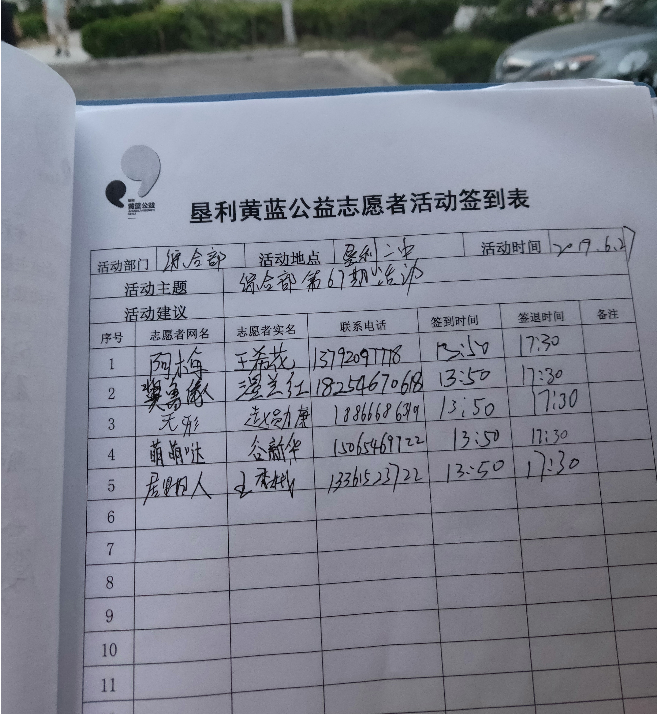 黄蓝公益
垦利黄蓝公益志愿者活动签到表
活动部门 综合部 活动地点 垦利二中 活动时间 2019.6.2
活动主题 综合部第67期
活动建议
序号 志愿者网名 志愿者实名 联系电话 签到时间 签退时间 备注
1 阿梅 王希花 13:50 17:30
2 兰红 18254670686 13:50 17:30
3 无形 赵勋康 13:50 17:30
4 萌萌哒 谷新华 15065469722 13:50 17:30
5 人 王 13361523722 13:50 17:30
6
7
8
9
10
11